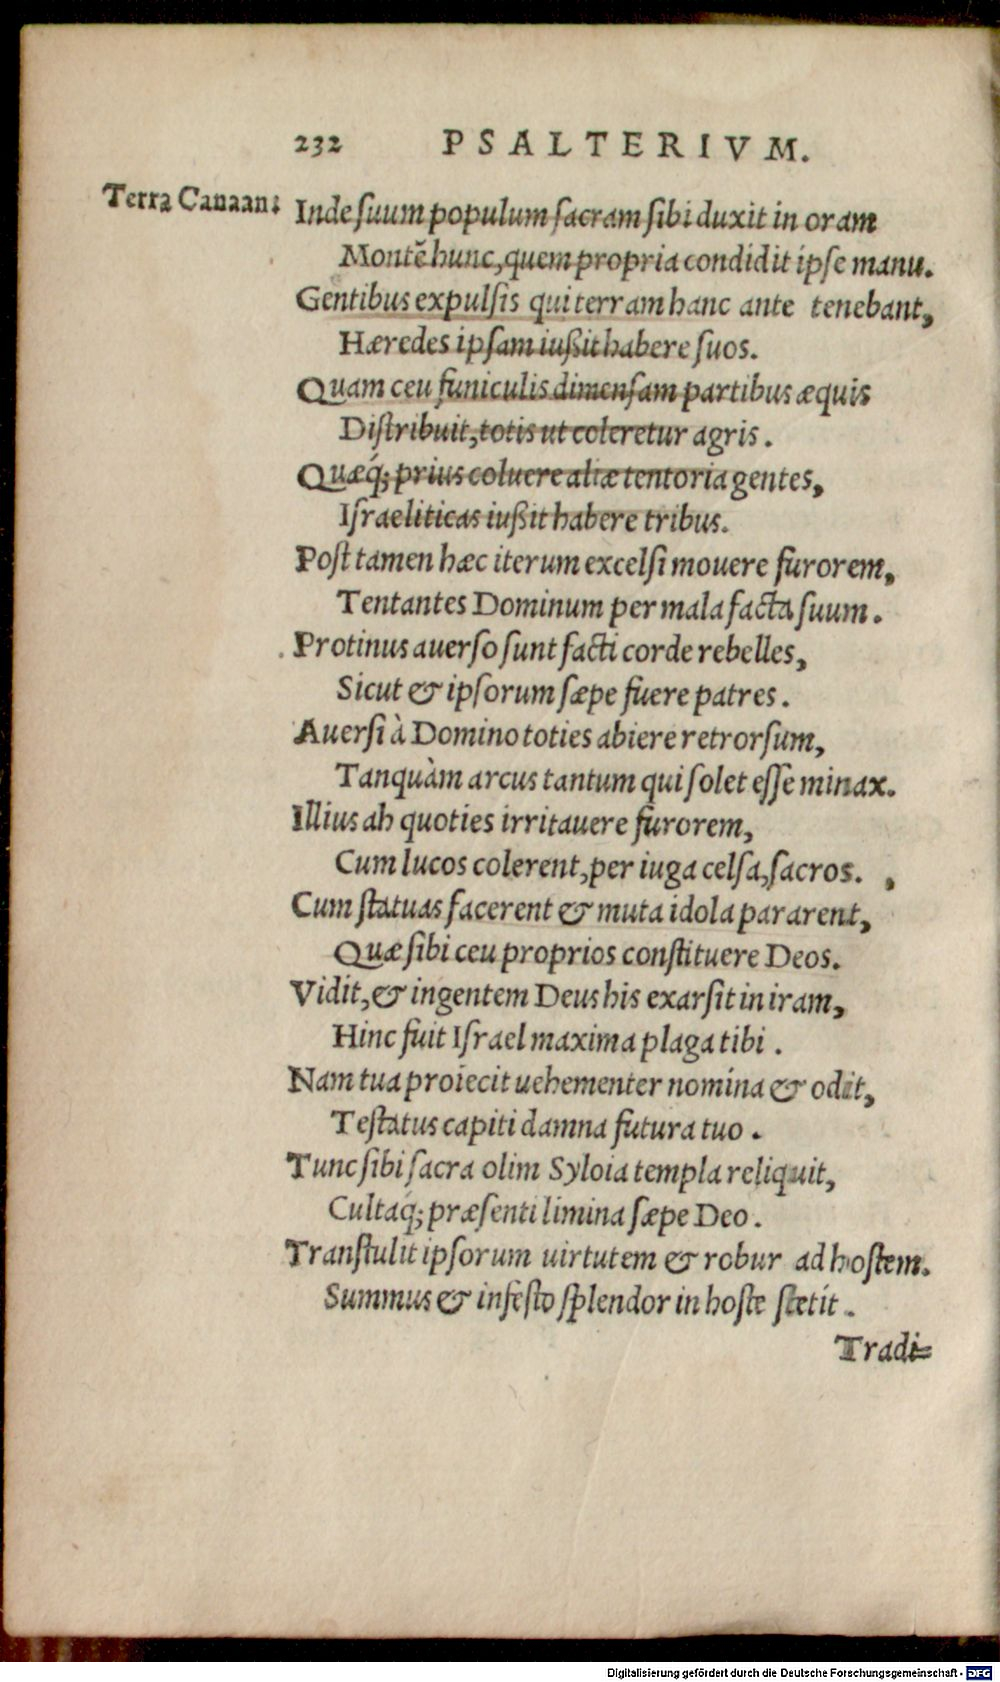 232 PSALTERIVM.
Terra Canaan: Inde ſuum populum ſacram ſibi duxit in oram
Montẽ hunc, quem propria condidit ipſe manu.
Gentibus expulſis qui terram hanc ante tenebant,
Hæredes ipſam iußit habere ſuos.
Quam ceu funiculis dimenſam partibus æquis
Diſtribuit, totis ut coleretur agris.
Quæq́; prius coluere aliæ tentoria gentes,
Iſraeliticas iußit habere tribus.
Poſt tamen hæc iterum excelſi mouere furorem,
Tentantes Dominum per mala facta ſuum.
Protinus auerſo ſunt facti corde rebelles,
Sicut & ipſorum ſæpe fuere patres.
Auerſi à Domino toties abiere retrorſum,
Tanquàm arcus tantum qui ſolet eſſe minax.
Illius ah quoties irritauere furorem,
Cum lucos colerent, per iuga celſa, ſacros.
Cum ſtatuas facerent & muta idola pararent,
Quæ ſibi ceu proprios conſtituere Deos.
Vidit, & ingentem Deus his exarſit in iram,
Hinc fuit Iſrael maxima plaga tibi.
Nam tua proiecit uehementer nomina & odit,
Teſtatus capiti damna futura tuo.
Tunc ſibi ſacra olim Syloia templa reliquit,
Cultaq́; præſenti limina ſæpe Deo.
Tranſtulit ipſorum uirtutem & robur ad hoſtem.
Summus & infeſto ſplendor in hoſte ſtetit.
Tradi=
Digitalisierung gefördert durch die Deutsche Forschungsgemeinschaft - DFG